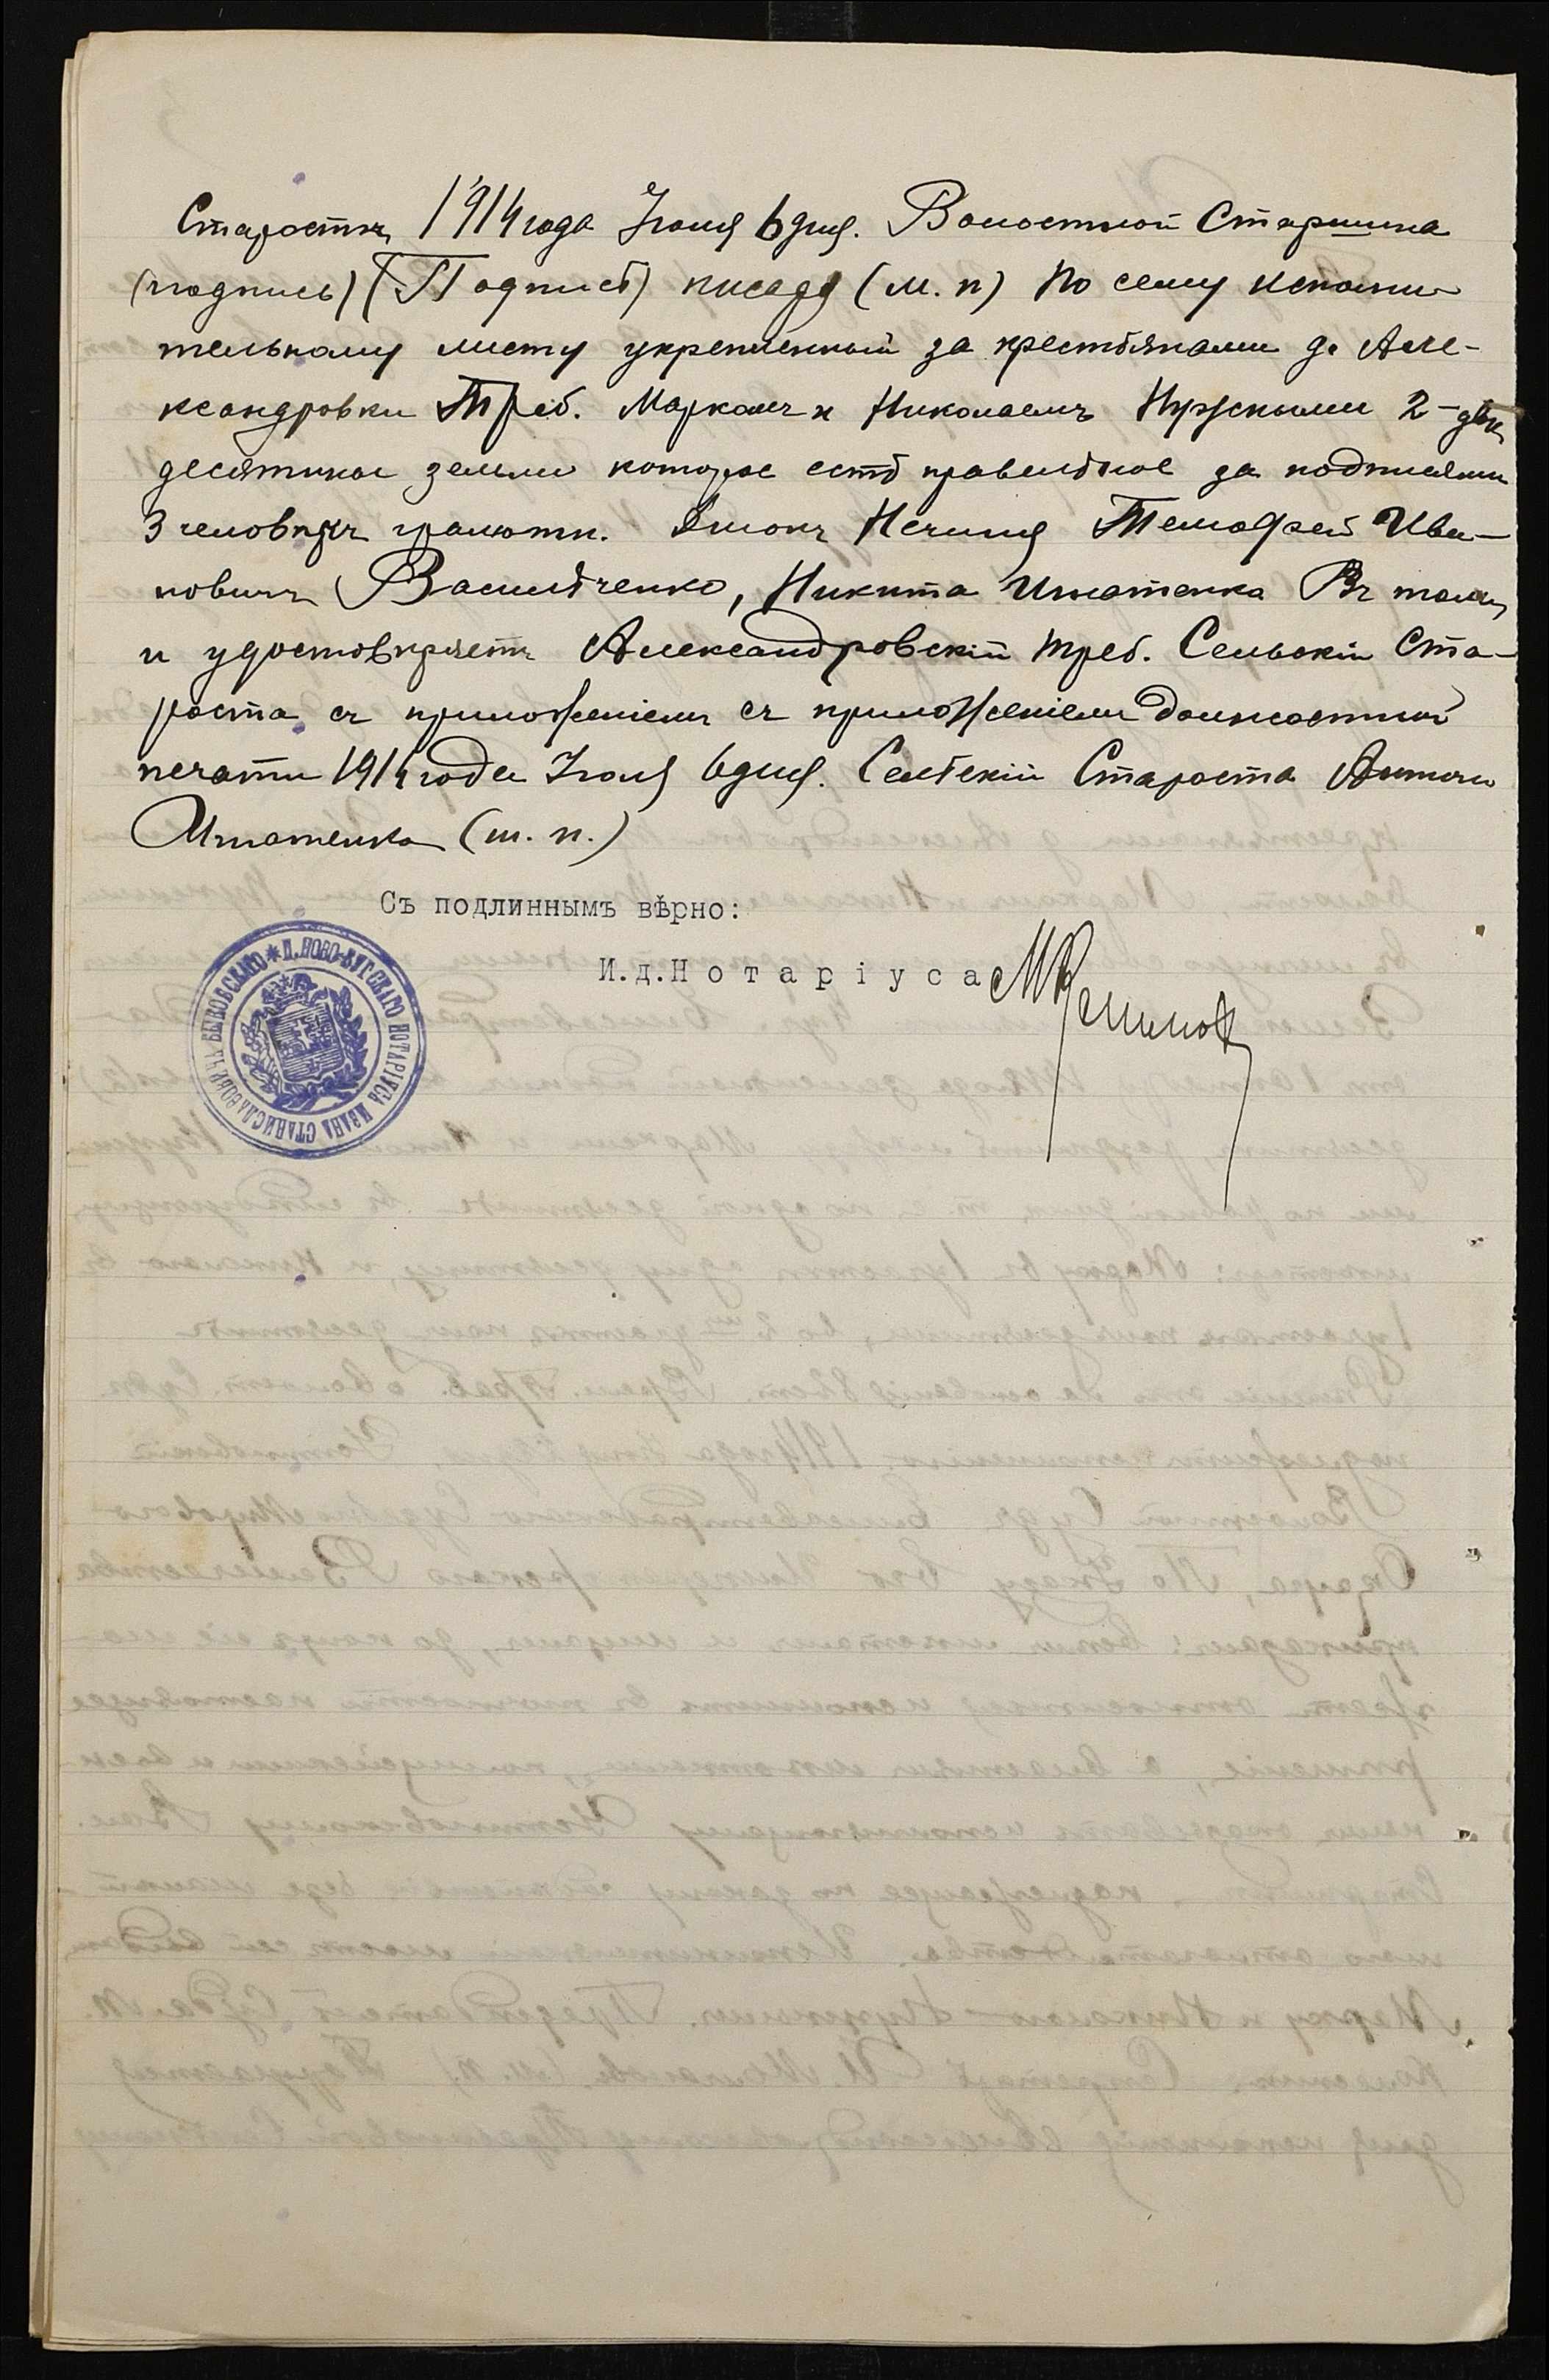 Старостѣ, 1914 года Іюля 6 дня. Волостной Старшина
(подпись) (Подпись) писарь (м. п) По сему исполни-
тельному листу укрепленный за крестьянами д. Але-
ксандровки Треб. Маркомъ и Николаемъ Нужными 2-двѣ
десятины земли которое есть правильное за подписями
3 человѣкъ грамотн. Антонъ Нечипа Темофей Ива-
новичъ Васильченко, Никита Игнатенка Въ томъ
и удостовѣряетъ Александровскій Треб. Сельскій Ста-
роста съ приложеніемъ съ приложеніемъ должностной
печати 1914 года Іюля 6 дня. Сельскій Староста Антонъ
Игнатенка (м. п.)
Съ подлиннымъ вѣрно:
И.д.Нотаріуса
Н.НОВО-БУГСКАГО НОТАРІУСА ИВАНА СТАНИСЛАВОВИЧА БЫКОВСКАГО